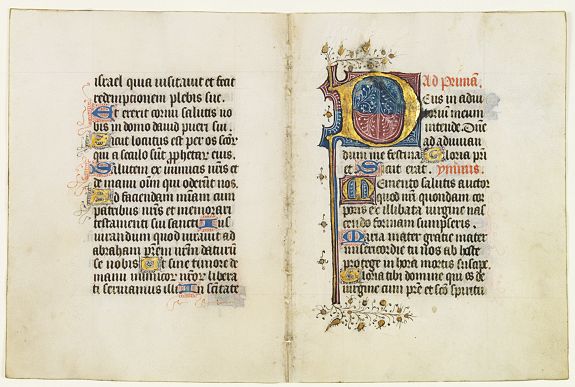 israel quia visitavit et fecit
redemptionem plebis sue.
Et erexit cornu salutis no
bis in domo david pueri sui.
Sicut locutus est per os scōr
qui a seculo sūt ꝓphetar̄ eius.
Salutem ex inimicis nr̄is et
de manu oīm qui oderūt nos.
Ad faciendam mīam cum
patribus nr̄is et memorari
testamenti sui sancti Ius
iurandum quod iuravit ad
abraham prēm nr̄m daturū
se nobis Ut sine timore de
manu inimicor̄ nr̄or̄ libera
ti serviamus illi In sc̄itate
Ad Primā.
Deus in adiu
toriū meum
intende Dn̄e
ad adiuvan
dum me festina Gloria pr̄i
et Sicut erat. ymnus.
Memento salutis auctor
quod nr̄i quondam cor
poris ex illibata virgine nas
cendo formam sumpseris.
Maria mater gratie mater
misericordie tu nos ab hoste
protege in hora mortis suscipe.
Gloria tibi domine qui es de
virgine cum pr̄e et sc̄o spiritu